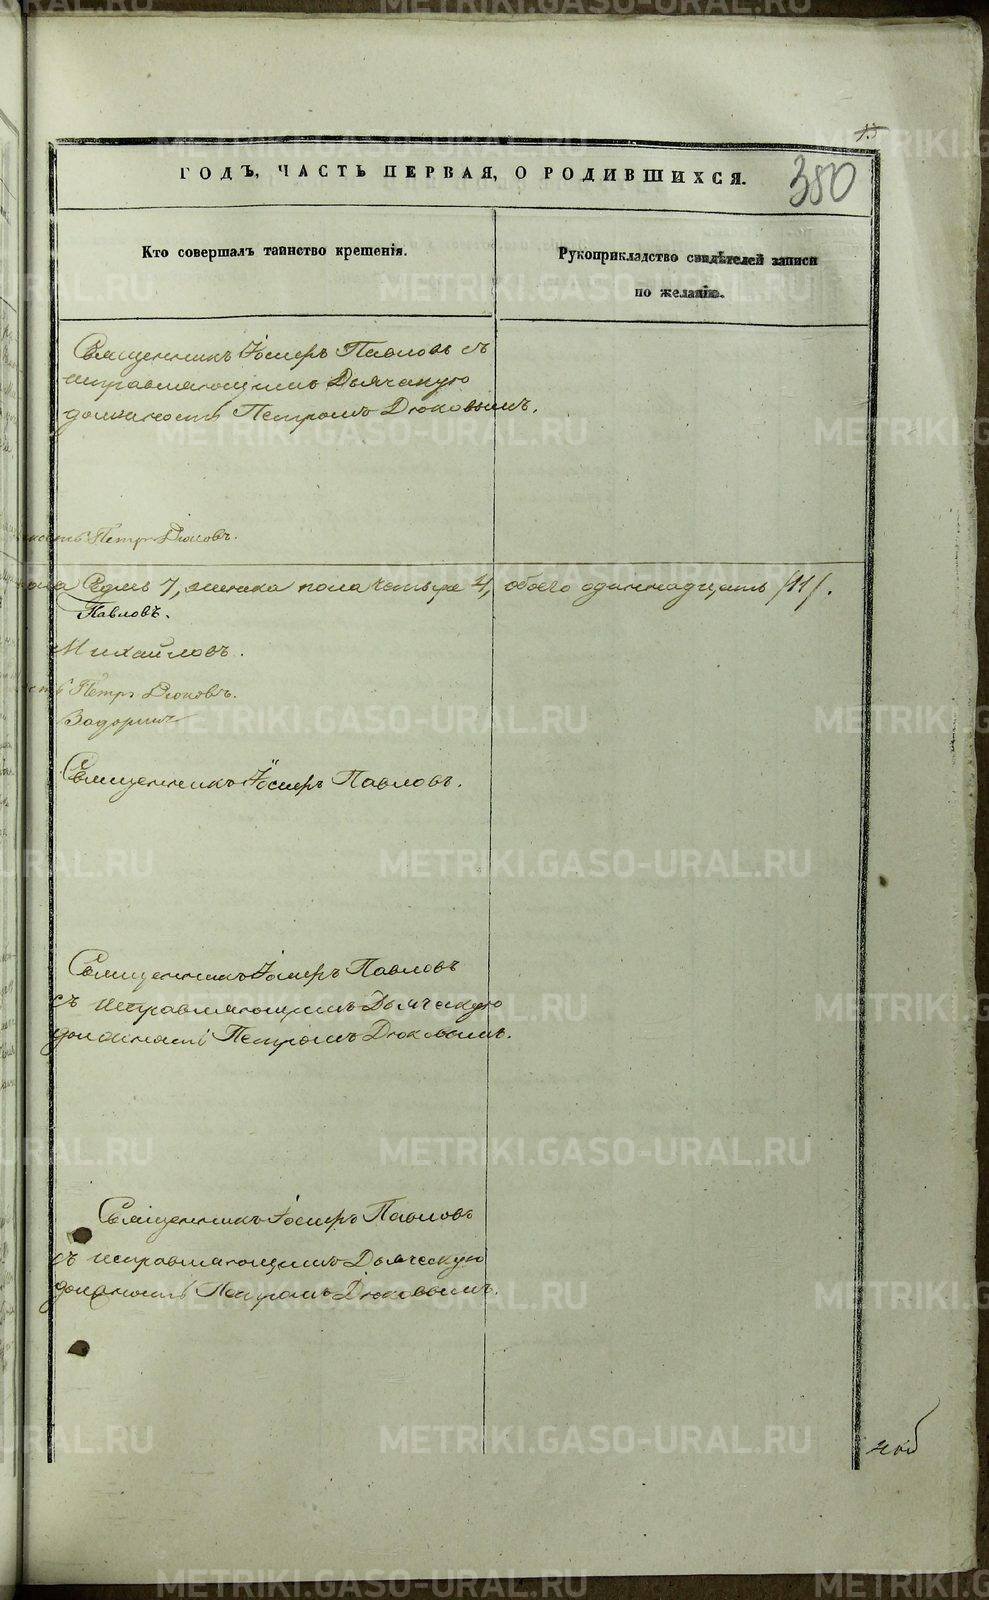 350
ГОДЪ, ЧАСТЬ ПЕРВАЯ, О РОДИВШИХСЯ.
Кто совершалъ таинство крещенія.
Рукоприкладство свидѣтелей записи
по желанію.
Священникъ Іосифъ Павловъ съ
исправляющимъ Дьяческую
должность Петромъ Дюковымъ.
Петръ Дюковъ.
пола Седмь 7, женска пола четыре 4, обоего одиннадцать /11/.
Павловъ.
Михайловъ.
Петръ Дюковъ.
Задоринъ
Священникъ Іосифъ Павловъ.
Священникъ Іосифъ Павловъ
съ исправляющимъ Дьяческую
должность Петромъ Дюковымъ.
Священникъ Іосифъ Павловъ
съ исправляющимъ Дьяческую
должность Петромъ Дюковымъ.
METRIKI.GASO-URAL.RU